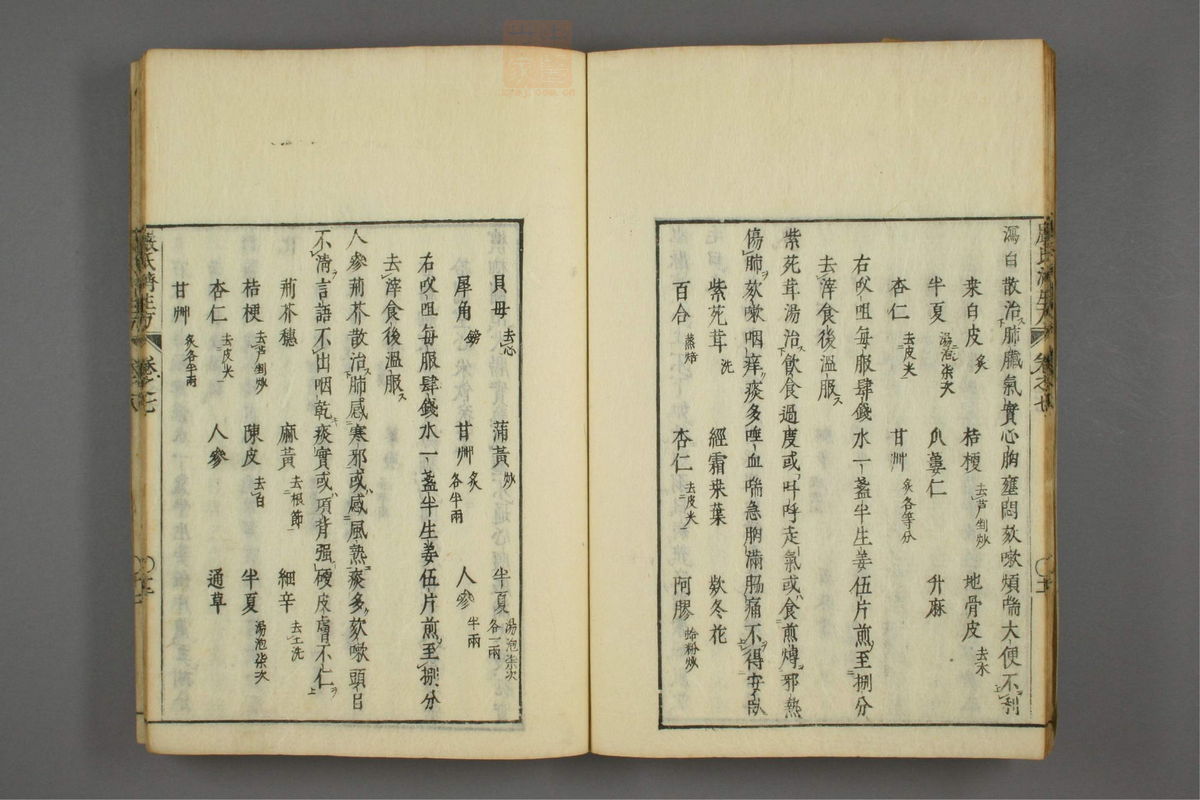 瀉白散治肺臟氣實心胸壅悶欬嗽煩喘大便不利
桒白皮炙 桔梗去芦剉炒 地骨皮去木
半夏湯泡柒次 瓜蔞仁 升麻
杏仁去皮尖 甘艸炙各等分
右㕮咀每服肆錢水一盞半生姜伍片煎至捌分
去滓食後温服
紫菀茸湯治飲食過度或叫呼走氣或食煎煿邪熱
傷肺欬嗽咽痒痰多唾血喘急胸滿脇痛不得安臥
紫菀茸洗 經霜桒葉 欵冬花
百合蒸焙 杏仁去皮尖 阿膠蛤粉炒
貝母去心 蒲黃炒 半夏湯泡柒次各一兩
犀角鎊 甘艸炙各半兩 人參半兩
右㕮咀每服肆錢水一盞半生姜伍片煎至捌分
去滓食後溫服
人參荊芥散治肺感寒邪或感風熱痰多欬嗽頭目
不清言語不出咽乾痰實或項背强硬皮膚不仁
荊芥穗 麻黃去根節 細辛去土洗
桔梗去芦剉炒 陳皮去白 半夏湯泡柒次
杏仁去皮尖 人參 通草
甘艸炙各半兩
嚴氏濟生方 卷之七